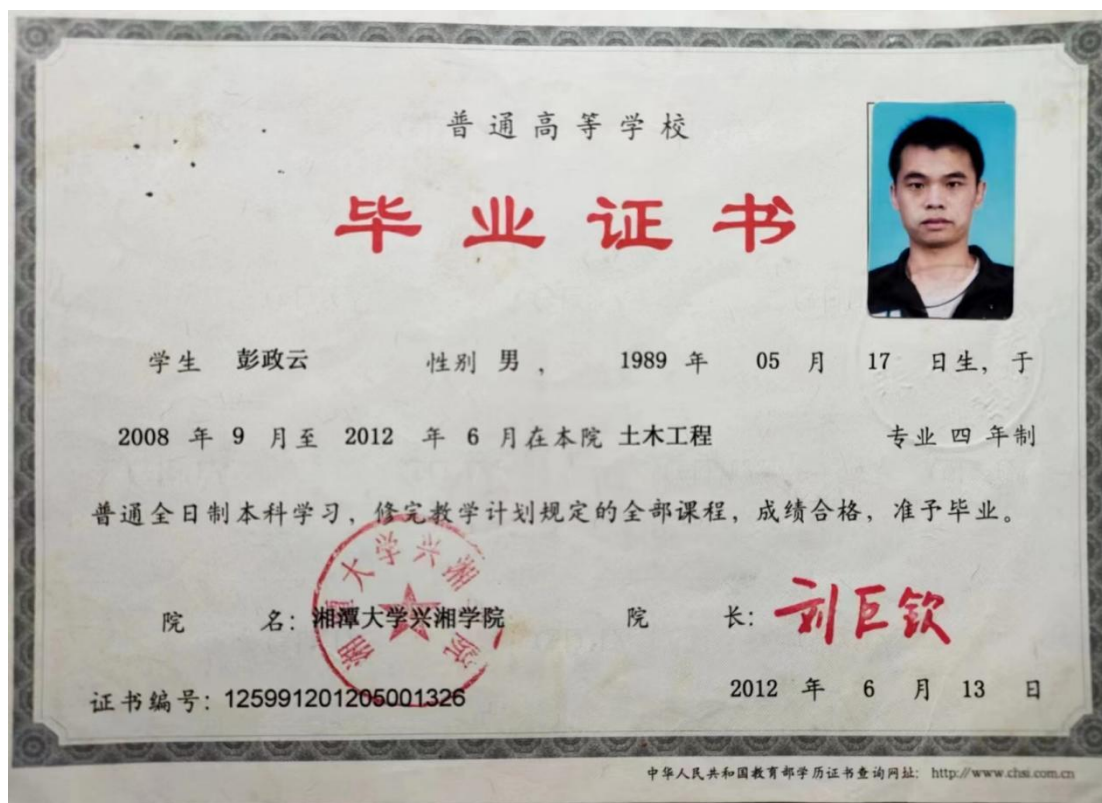 普通高等学校
毕业证书
学生 彭政云 性别 男, 1989 年 05 月 17 日生, 于
2008 年 9 月至 2012 年 6 月在本院 土木工程 专业 四 年制
普通全日制本科学习, 修完教学计划规定的全部课程, 成绩合格, 准予毕业。
院 名: 湘潭大学兴湘学院 院 长: 刘巨钦
湘潭大学兴湘学院
证书编号: 125991201205001326 2012 年 6 月 13 日
中华人民共和国教育部学历证书查询网址: http://www.chsi.com.cn